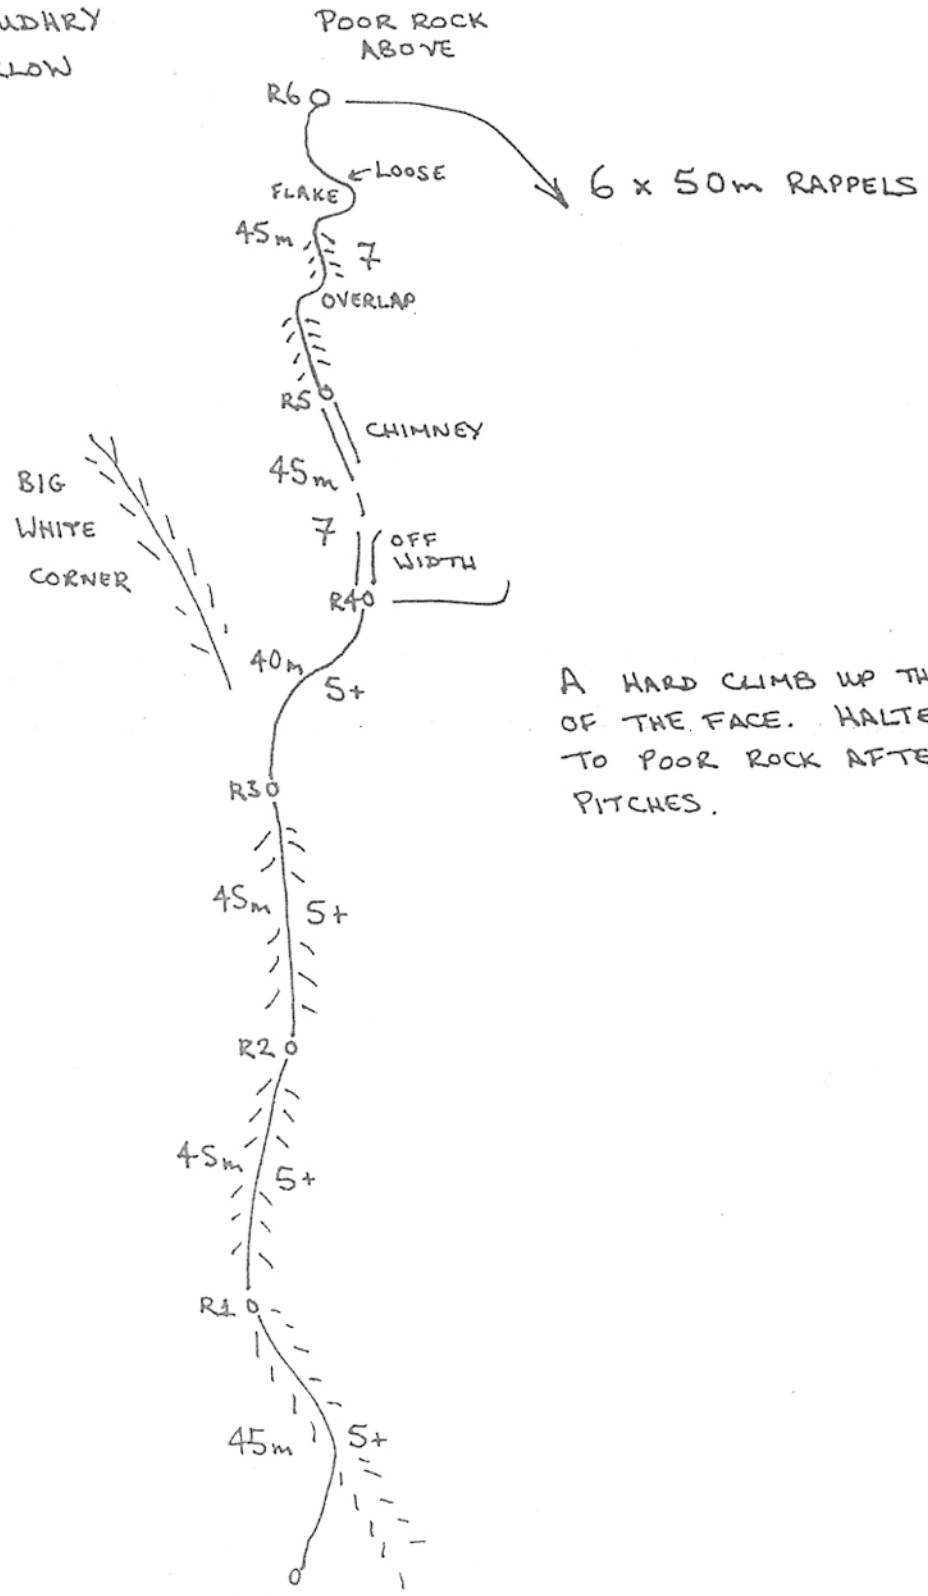 UDHRY
LLOW
POOR ROCK
ABOVE
R6
LOOSE
FLAKE
6 x 50m RAPPELS
45m
7
OVERLAP
R5
CHIMNEY
45m
BIG
WHITE
CORNER
7
OFF
WIDTH
R4
40m
5+
A HARD CLIMB UP TH
OF THE FACE. HALTE
TO POOR ROCK AFTE
PITCHES.
R3
45m
5+
R2
45m
5+
R1
45m
5+